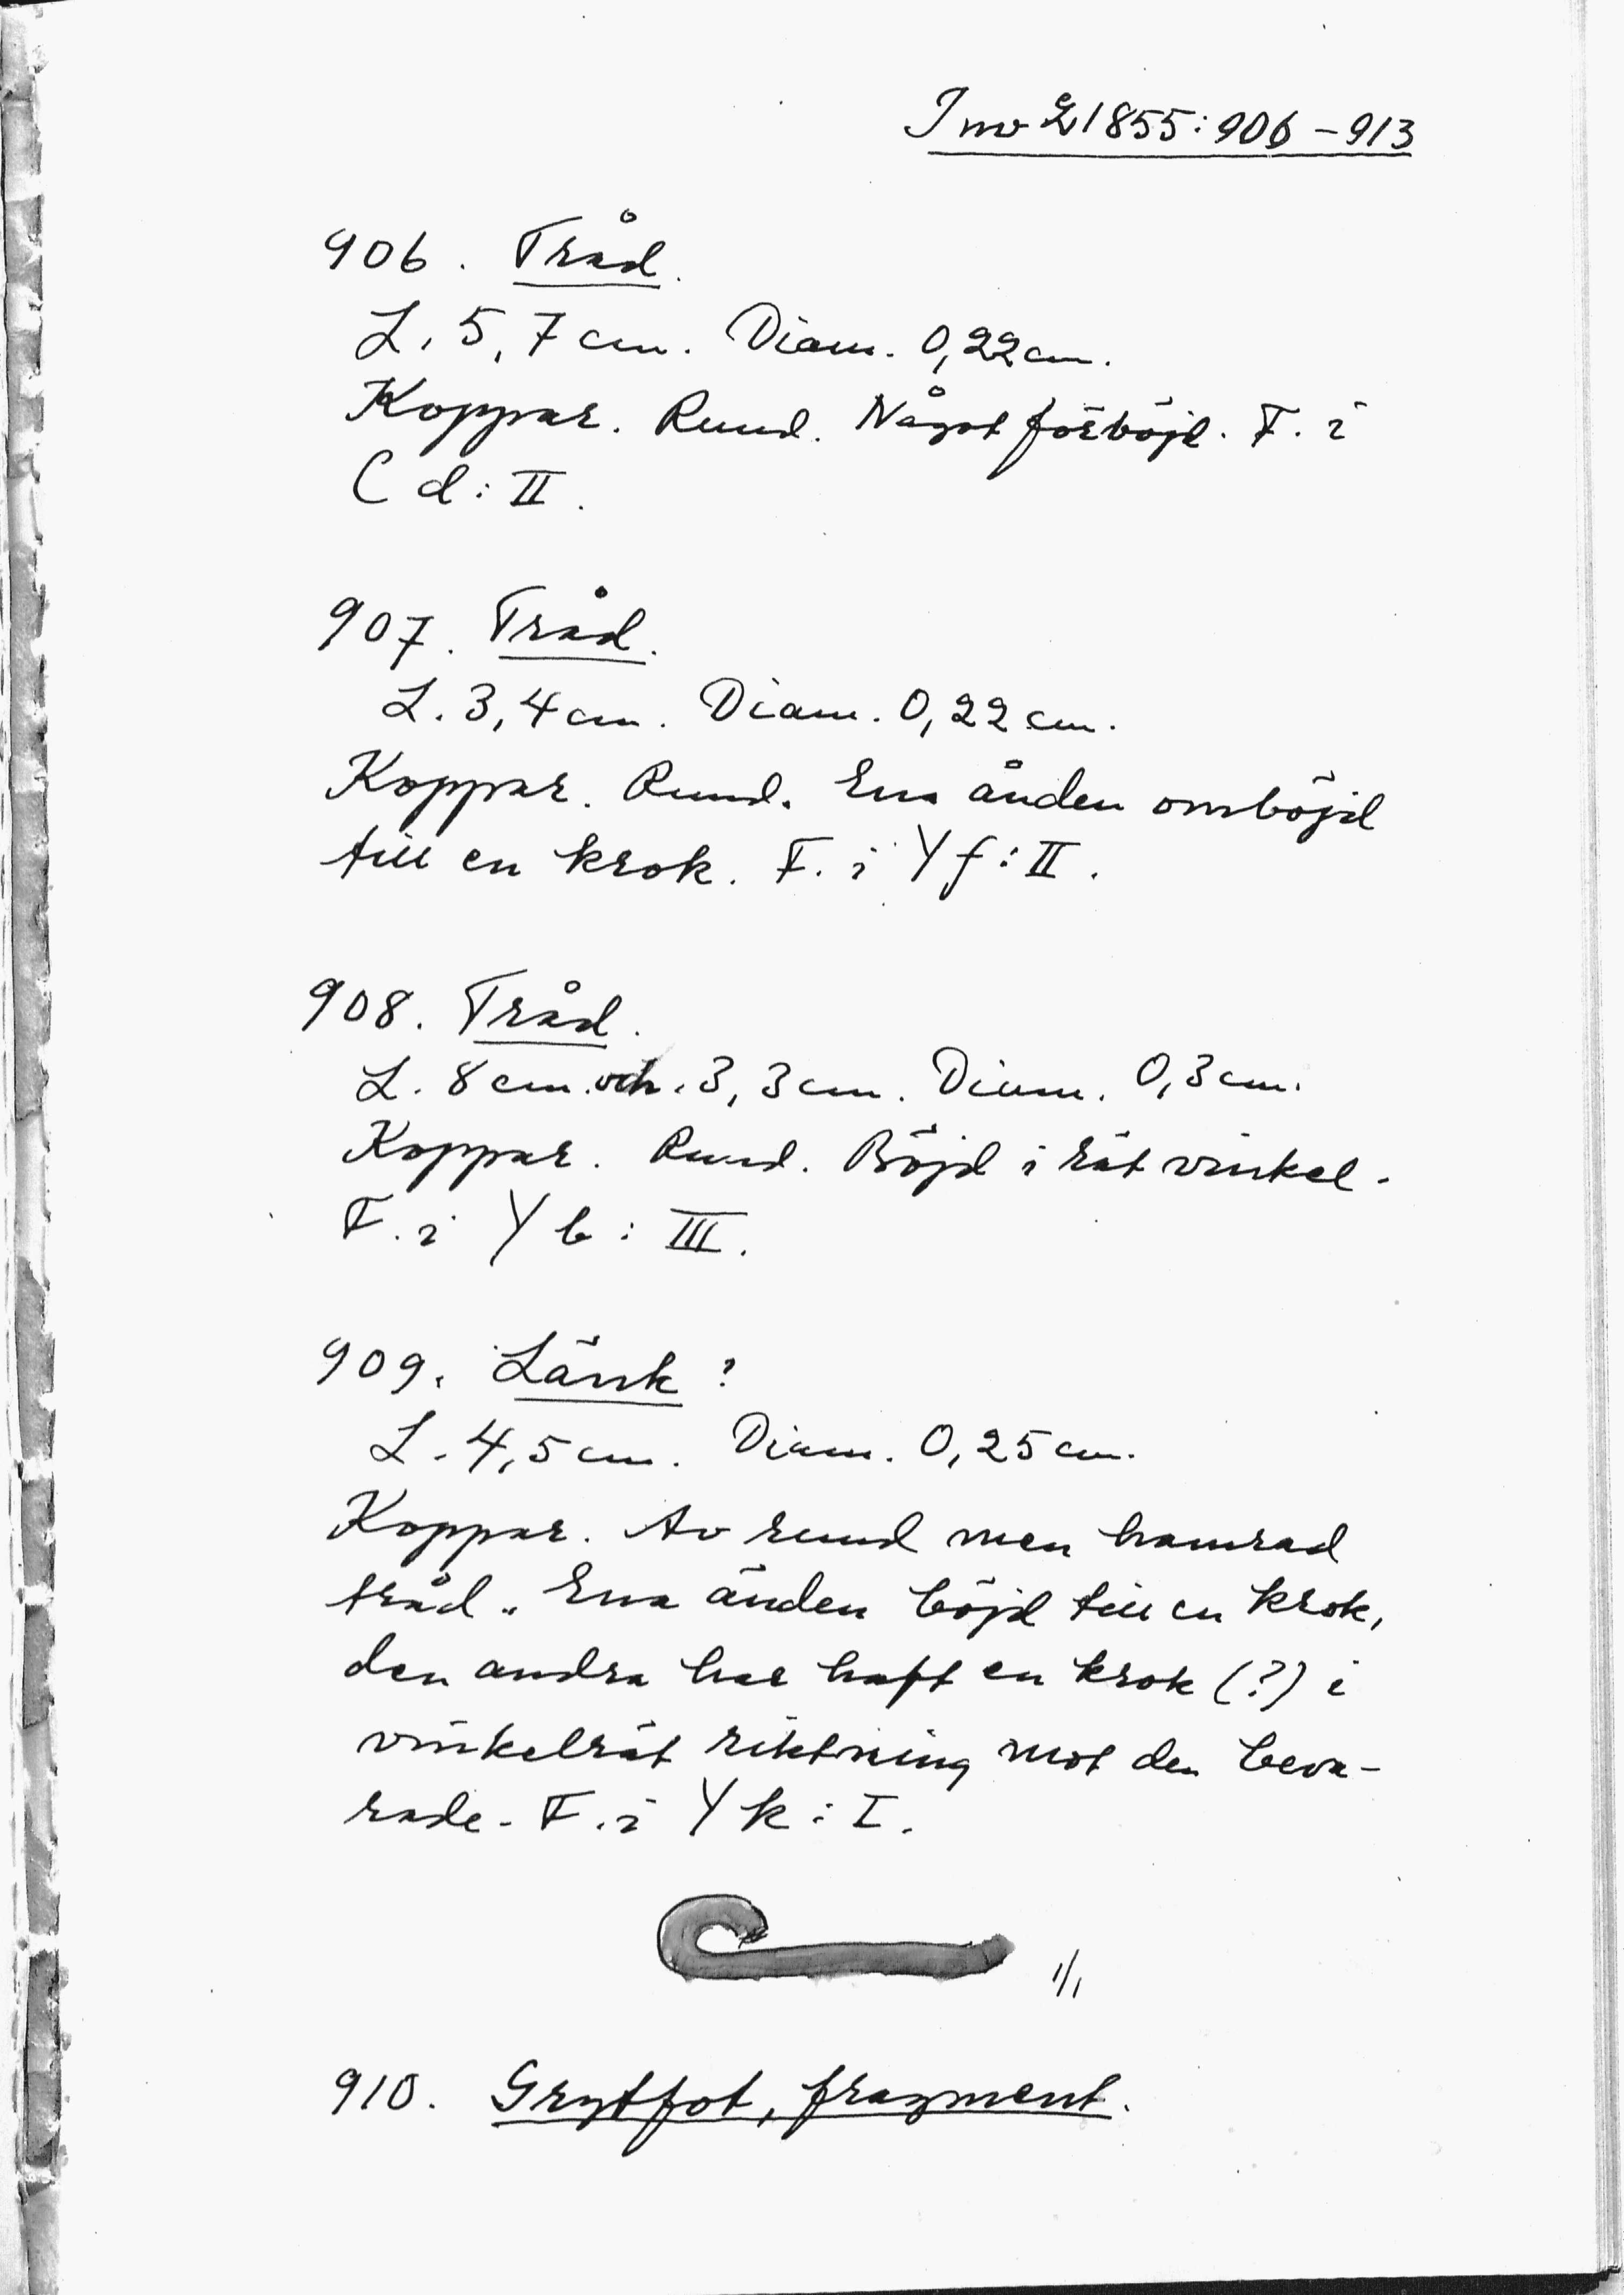 Inv 21855:906-913
906. Tråd.
L. 5,7 cm. Diam. 0,22 cm.
Koppar. Rund. Något förböjd. F. i
C d: II.
907. Tråd.
L. 3,4 cm. Diam. 0,22 cm.
Koppar. Rund. Ena änden omböjd
till en krok. F. i Y f: II.
908. Tråd.
L. 8 cm. och. 3,3 cm. Diam. 0,3 cm.
Koppar. Rund. Böjd i rät vinkel.
F. i Y b: III.
909. Länk?
L. 4,5 cm. Diam. 0,25 cm.
Koppar. Av rund men hamrad
tråd. Ena änden böjd till en krok,
den andra har haft en krok (?) i
vinkelrät riktning mot den beva-
rade. F. i Y k: I.
1/1
910. Grytfot, fragment.